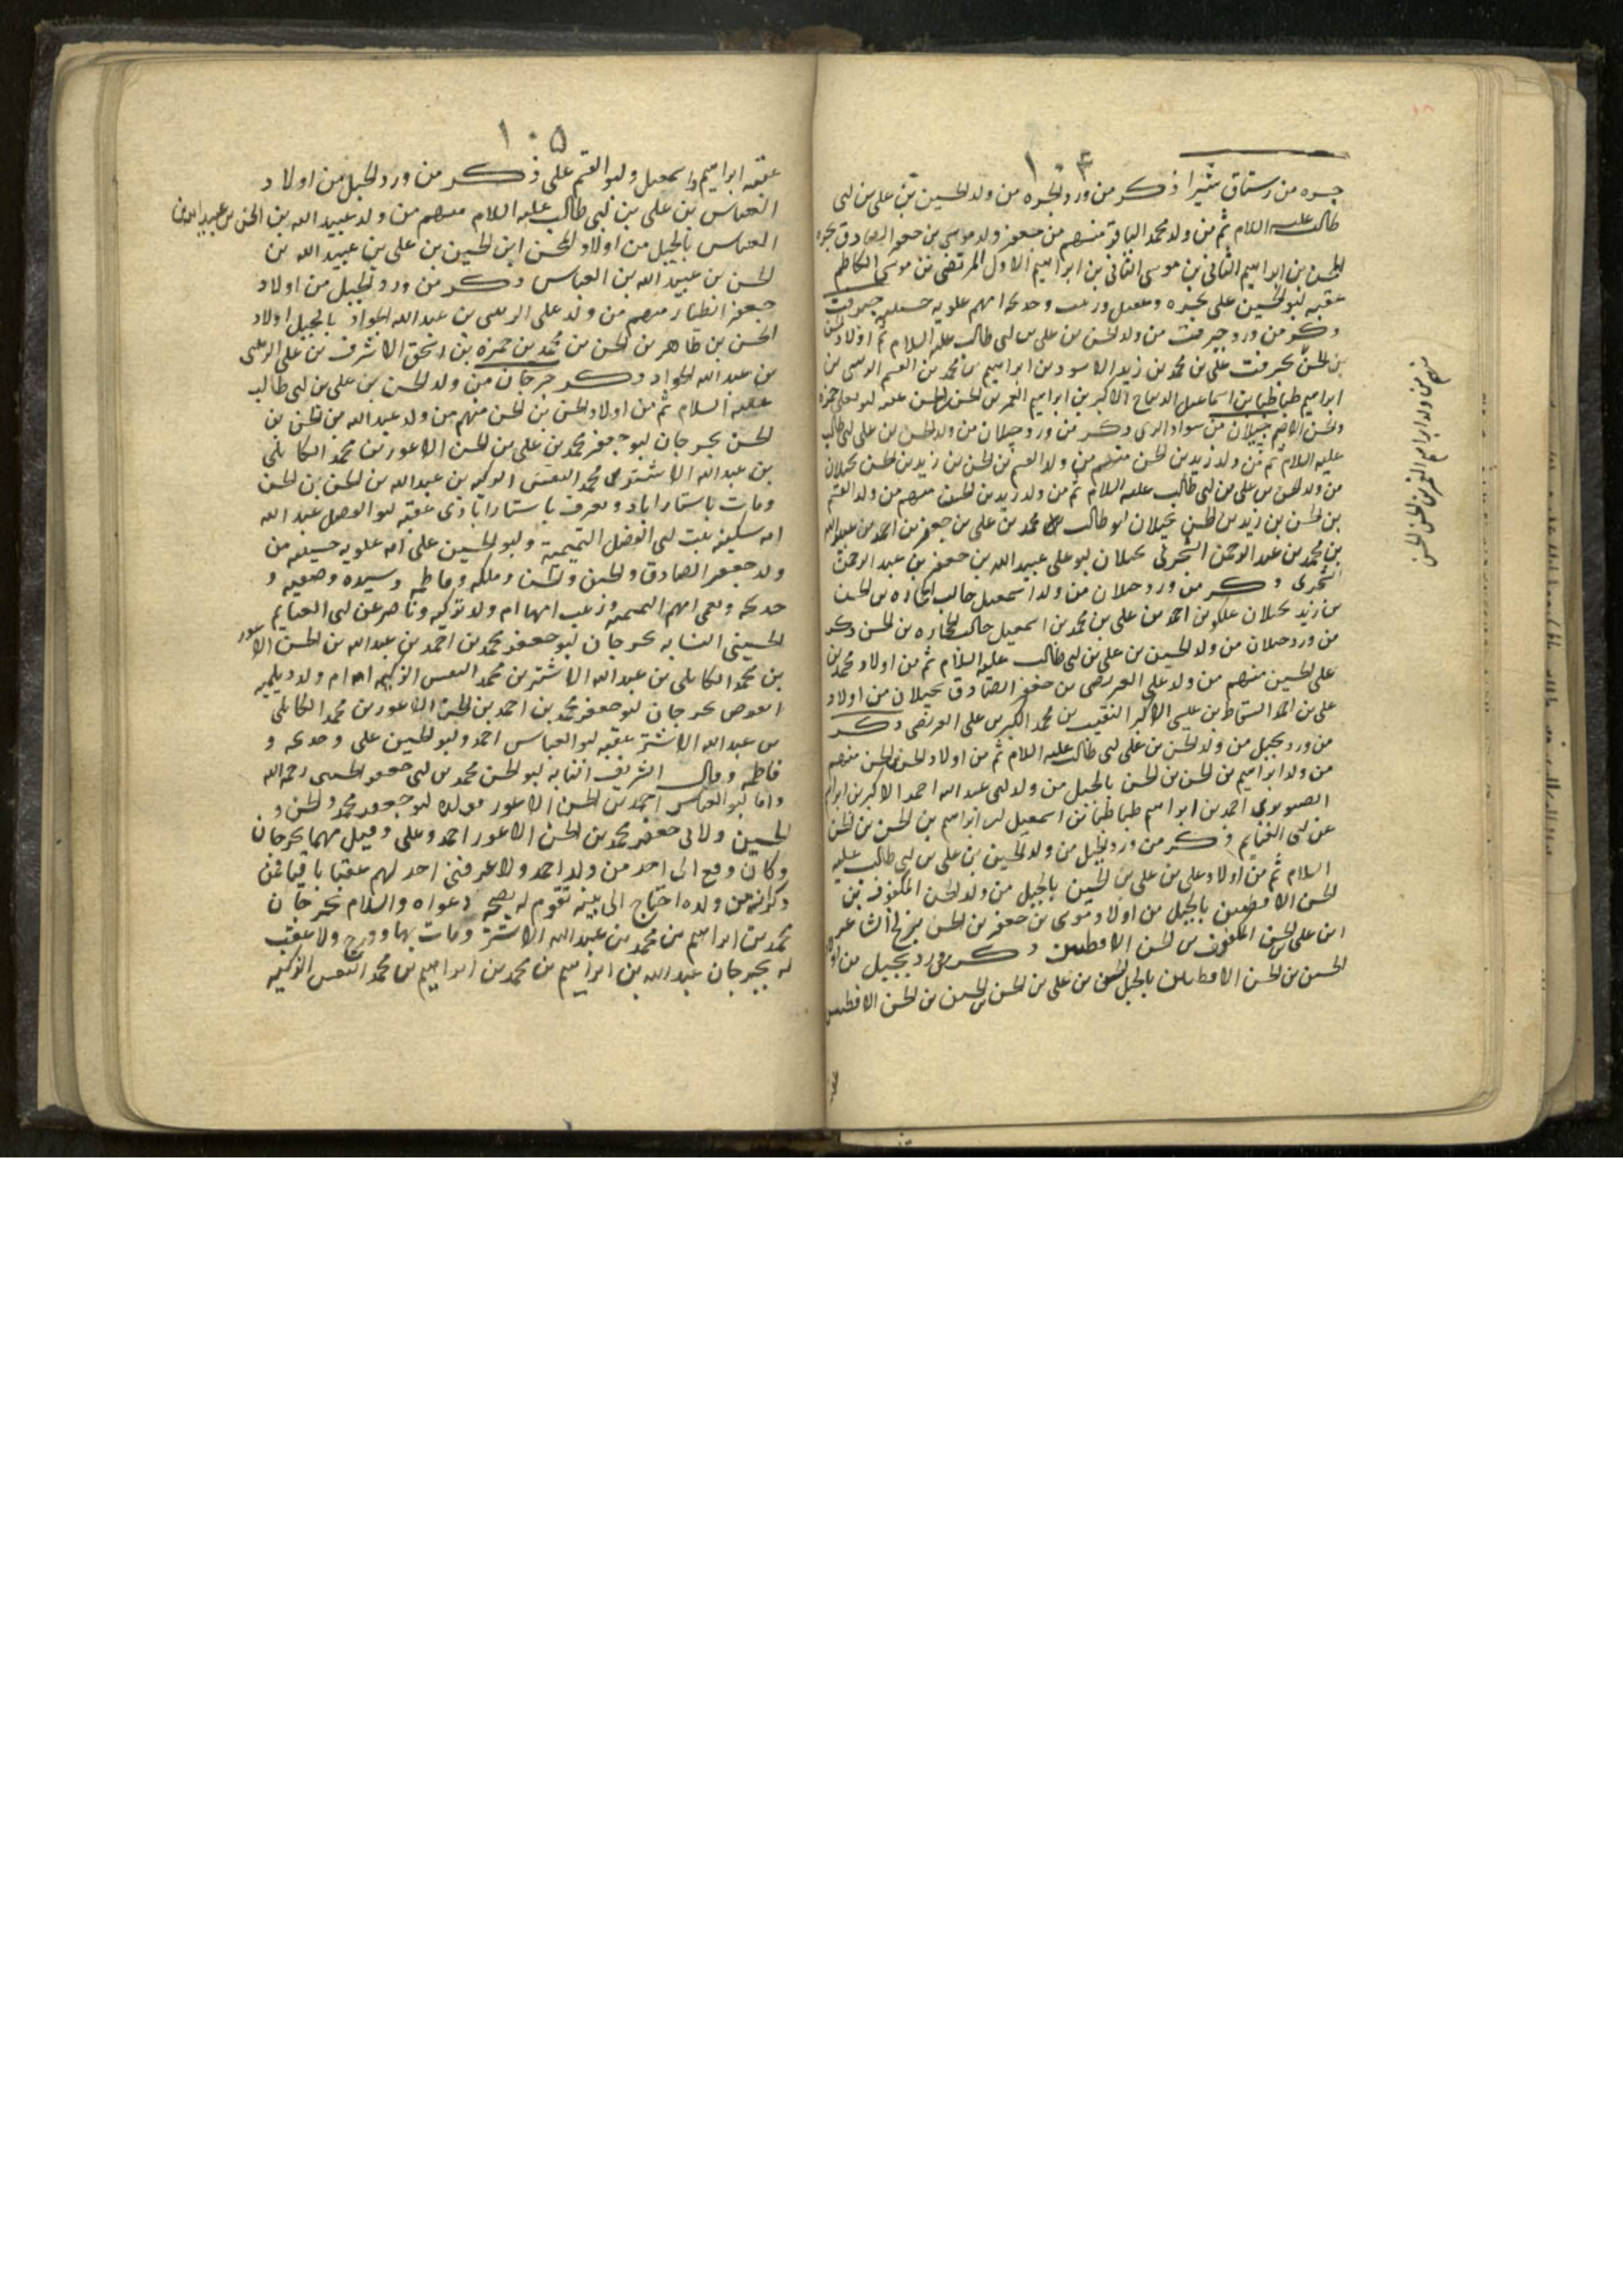 ١٠٤
جره من رستاق شيرا ذكر من ورد الجره من ولد الحسين بن علي بن ابي
طالب عليه السلام ثم من ولد محمد الباقر منهم من جعفر ولد موسى بن جعفر الصادق بجره
الحسن بن ابراهيم الثاني بن موسى الثاني بن ابراهيم الاول المرتضى بن موسى الكاظم
عقبه ابو الحسين علي بجره امهم علويه جيرفت
ذكر من ورد جيرفت من ولد الحسن بن علي بن ابي طالب عليه السلام ثم اولاد الحسن
بن الحسن بجيرفت علي بن محمد بن زيد الاسود بن ابراهيم بن محمد بن القسم الرسي بن
ابراهيم طباطبا بن اسماعيل الديباج الاكبر بن ابراهيم الغمر بن الحسن بن الحسن عقبه ابو يعلى حمزه
والحسن الاصم جيلان من سواد الري ذكر من ورد جيلان من ولد الحسن بن علي بن ابي طالب
عليه السلام ثم من ولد زيد بن الحسن منهم من ولد القسم بن الحسن بن زيد بن الحسن بجيلان
من ولد الحسن بن علي بن ابي طالب عليه السلام ثم من ولد زيد بن الحسن منهم من ولد القسم
بن الحسن بن زيد بن الحسن بجيلان ابو طالب محمد بن علي بن جعفر بن احمد بن عبيد الله
بن محمد بن عبد الرحمن الشجري بجيلان ابو علي عبيد الله بن جعفر بن عبد الرحمن
الشجري ذكر من ورد جيلان من ولد اسمعيل جالب الحجاره بن الحسن
بن زيد بجيلان بن احمد بن علي بن محمد بن اسمعيل جالب الحجاره بن الحسن ذكر
من ورد جيلان من ولد الحسين بن علي بن ابي طالب عليه السلام ثم من اولاد محمد بن
علي الحسين منهم من ولد علي العريضي بن جعفر الصادق بجيلان من اولاد
علي بن احمد بن عيسى الاكبر النقيب بن محمد الاكبر بن علي العريضي ذكر
من ورد بجبل من ولد الحسن بن علي بن ابي طالب عليه السلام ثم من اولاد الحسن بن الحسن منهم
من ولد ابراهيم بن الحسن بن الحسن بالجبل من ولد ابي عبد الله احمد الاكبر بن ابراهيم
احمد بن ابراهيم طباطبا بن اسمعيل بن ابراهيم بن الحسن بن الحسن
عن ابي الغنايم ذكر من ورد بجبل من ولد الحسين بن علي بن ابي طالب عليه
السلام ثم من اولاد علي بن علي بن الحسين بالجبل من ولد الحسن المكفوف بن
الحسن الافطس بالجبل من اولاد موسى بن جعفر بن الحسن الشاعر
ابن علي الحسن المكفوف بن الحسن الافطس ذكر من ورد بجبل من اولاد
الحسين بن الحسن الافطس بالجبل الحسن بن علي بن الحسن بن الحسين بن الحسن الافطس
عقبه
منهم من ولد ابراهيم الغمر بن الحسن الحسن
١٠٥
عقبه ابراهيم واسمعيل وابو القسم علي ذكر من ورد الجبل من اولاد
العباس بن علي بن ابي طالب عليه السلام منهم من ولد عبيد الله بن الحسن بن عبيد الله بن
العباس بالجبل من اولاد الحسن ابن الحسين بن علي بن عبيد الله بن
الحسن بن عبيد الله بن العباس ذكر من ورد الجبل من اولاد
جعفر الطيار منهم من ولد علي الزينبي بن عبد الله الجواد بالجبل اولاد
الحسن بن طاهر بن الحسن بن محمد بن حمزه بن اسحق الاشرف بن علي الزينبي
بن عبد الله الجواد ذكر جرجان من ولد الحسن بن علي بن ابي طالب
عليه السلام ثم من اولاد الحسن بن الحسن منهم من ولد عبد الله بن الحسن بن
الحسن بجرجان ابو جعفر محمد بن علي بن الحسن الاعور بن محمد الكابلي
بن عبد الله الاشتر بن محمد النفس الزكيه بن عبد الله بن الحسن بن الحسن
ومات باستاراباد ويعرف باستاراباذي عقبه ابو الفضل عبد الله
امه سكينه بنت ابي الفضل التميمية وابو الحسين علي امه علويه حسينيه من
ولد جعفر الصادق والحسن والحسن وملكه وفاطمه وسيده وصفيه و
خديجه امهم التميميه وزينب امها ام ولد تركيه وناصر عن ابي الغنايم
الحسيني النسابه بجرجان ابو جعفر محمد بن احمد بن عبد الله بن الحسن الاعور
بن محمد الكابلي بن عبد الله الاشتر بن محمد النفس الزكيه امه ام ولد ديلميه
بجرجان ابو جعفر محمد بن احمد بن الحسن الاعور بن محمد الكابلي
بن عبد الله الاشتر عقبه ابو العباس احمد وابو الحسين علي وخديجه و
فاطمه وقال الشريف النسابه ابو الحسن محمد بن ابي جعفر الحسيني رحمه الله
واما ابو العباس احمد بن الحسن الاعور فولده ابو جعفر محمد والحسن و
الحسين ولابي جعفر محمد بن الحسن الاعور احمد وعلي وقيل مهما بجرجان
وكان وقع الى احد من ولد احمد ولا عرفني احد لهم عقبا باقيا فمن
ذكر انه من ولده احتاج الى بينه تقوم له بصحه دعواه والسلام بجرجان
محمد بن ابراهيم بن محمد بن عبد الله الاشتر ومات بها ودرج ولا عقب
له بجرجان عبد الله بن ابراهيم بن محمد بن ابراهيم بن محمد النفس الزكيه